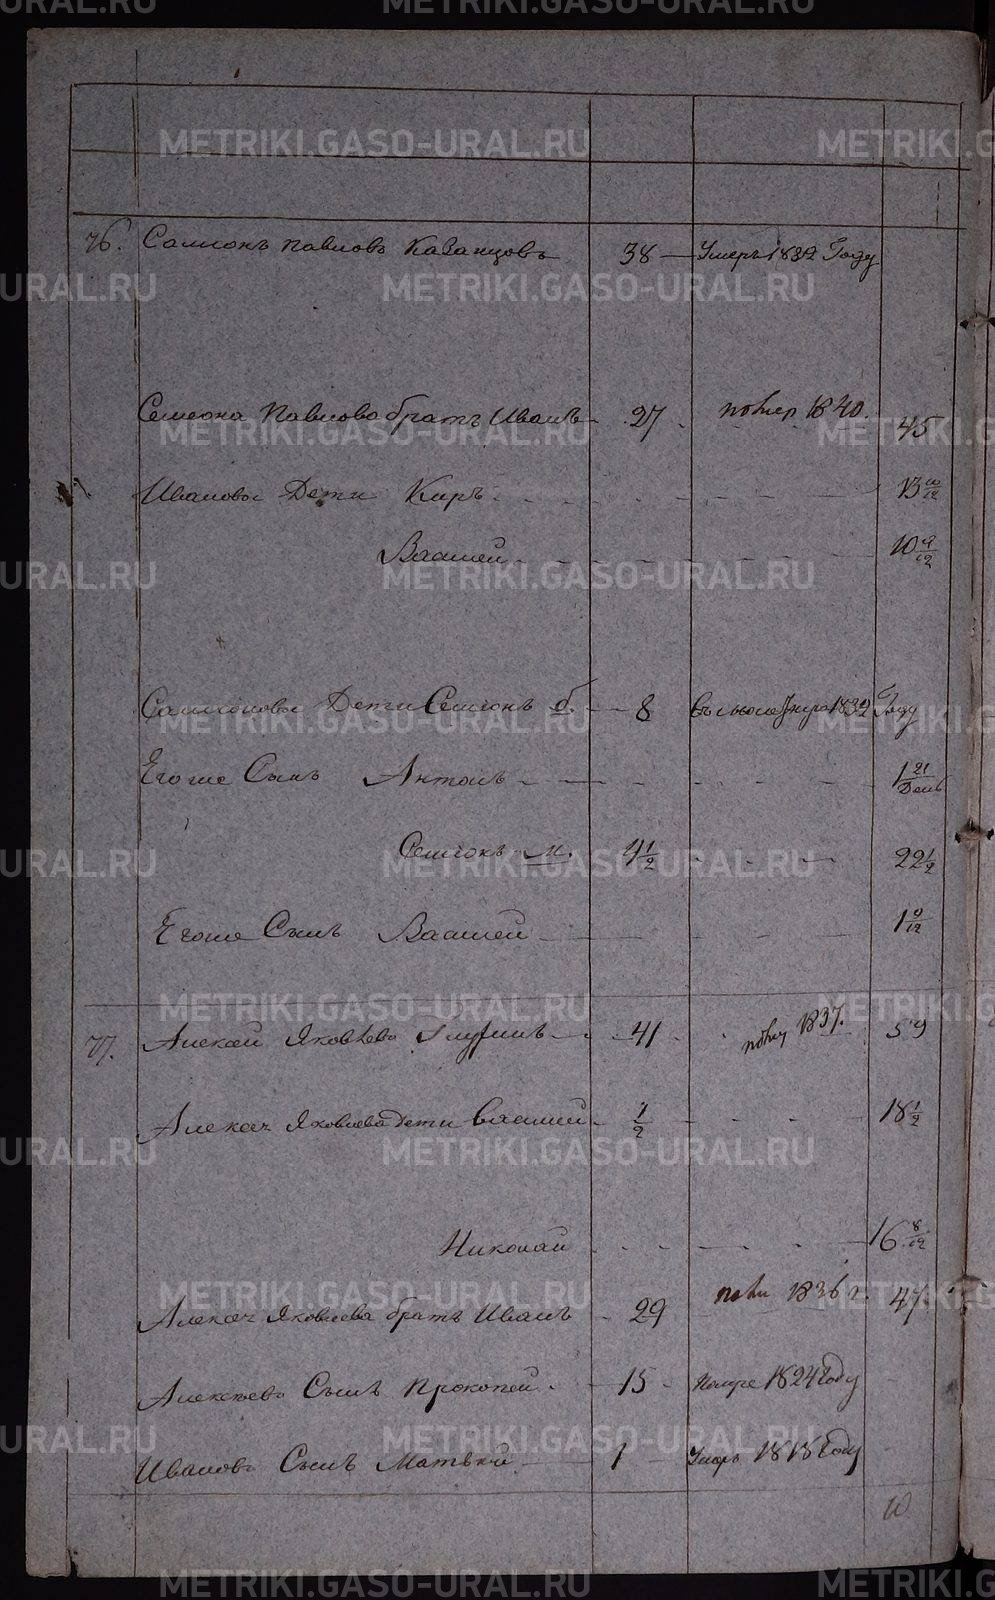 76. Самсонъ павловъ Казанцовъ 38 Умеръ 1832 Году
Семсона Павлова братъ Иванъ 27 помер 1840. 45
Ивановы Дети Киръ 13 10/12
Василей 10 9/12
Самсоновы Дети Семіонъ б. 8 1832 Году
Егоже Сынъ Антонъ 1 21/День
Семіонъ м. 4 1/2 22 1/2
Егоже Сынъ Василей 1 9/12
77. Алексей Яковлевъ 41 1837. 59
Алексея Яковлева дети Василий 1/2 18 1/2
Николай 16 8/12
Алексея Яковлева братъ Иванъ 29 1836 г 47.
Алексеевъ Сынъ Прокопей 15 1824 Году
Ивановъ Сынъ Матвей 1 Умеръ 1818 Году
10
METRIKI.GASO-URAL.RU